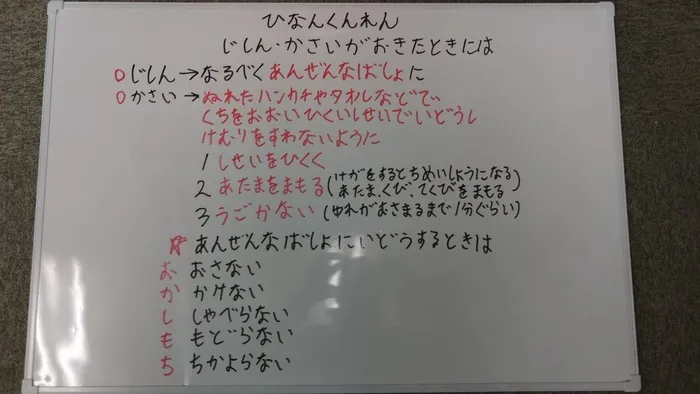 ひなんくんれん
じしん・かさいがおきたときには
○じしん→なるべくあんぜんなばしょに
○かさい→ぬれたハンカチやタオルなどで
くちをおおいひくいしせいでいどうし
けむりをすわないように
1 しせいをひくく
2 あたまをまもる(けがをするとちめいしょうになる
あたま、くび、てくびをまもる)
3 うごかない(ゆれがおさまるまで1分ぐらい)
☆あんぜんなばしょにいどうするときは
お おさない
か かけない
し しゃべらない
も もどらない
ち ちかよらない